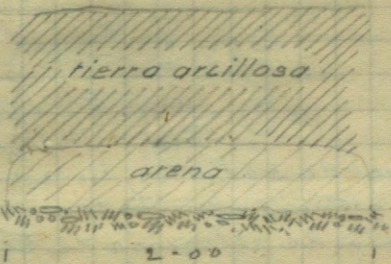 tierra arcillosa
arena
2-00